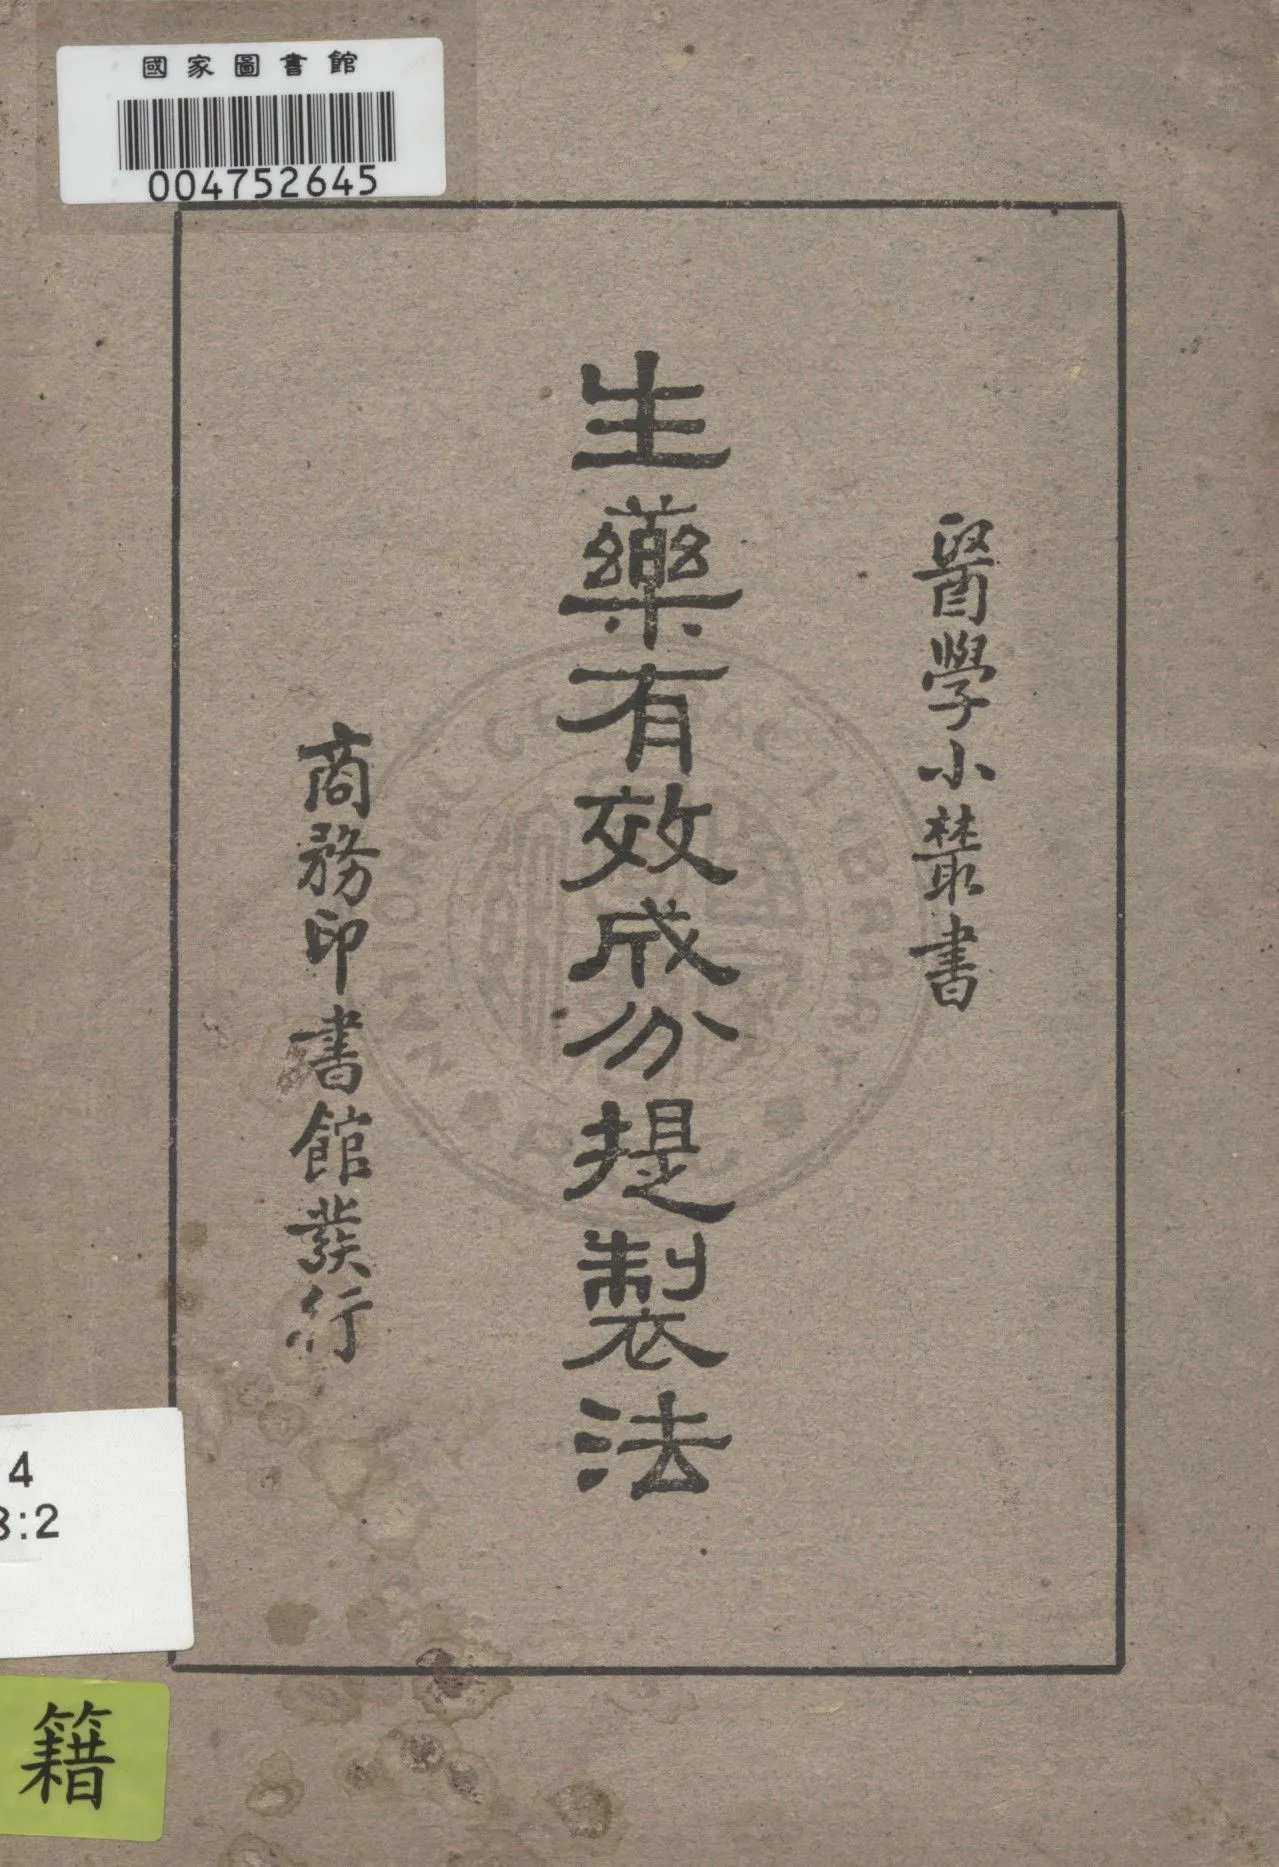 國家圖書館
004752645
醫學小叢書
生藥有效成分提製法
商務印書館發行
4
3:2
籍